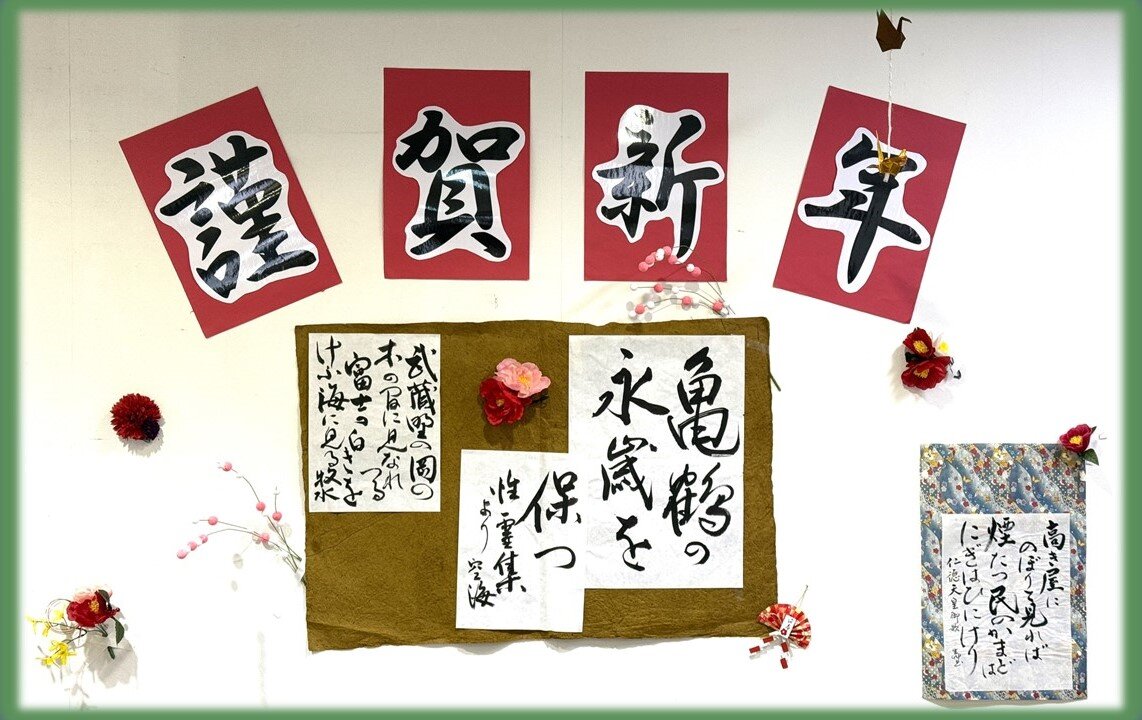 謹賀新年
亀鶴の
永歳を
保つ
性霊集
より 空海
武蔵野の岡の
木の間に見なれ
つる
富士の白きを
けふ海に見る 牧水
高き屋に
のぼりて見れば
煙たつ民のかまどは
にぎはひにけり
仁徳天皇御歌